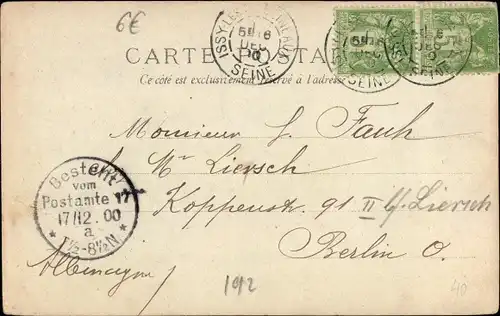 6€
ISSY-LES-MOULINEAUX
5E 16
DEC
00
SEINE
CARTE POSTALE
Ce côté est exclusivement réservé à l'adresse
Monsieur L. Fauh
b. Mr Liersch
Koppenstr. 91 II b/Liersch
Berlin O.
Allemagne
Bestellt
vom
Postamte 17
17/12. 00
a
* 7½-8½N *
192
40